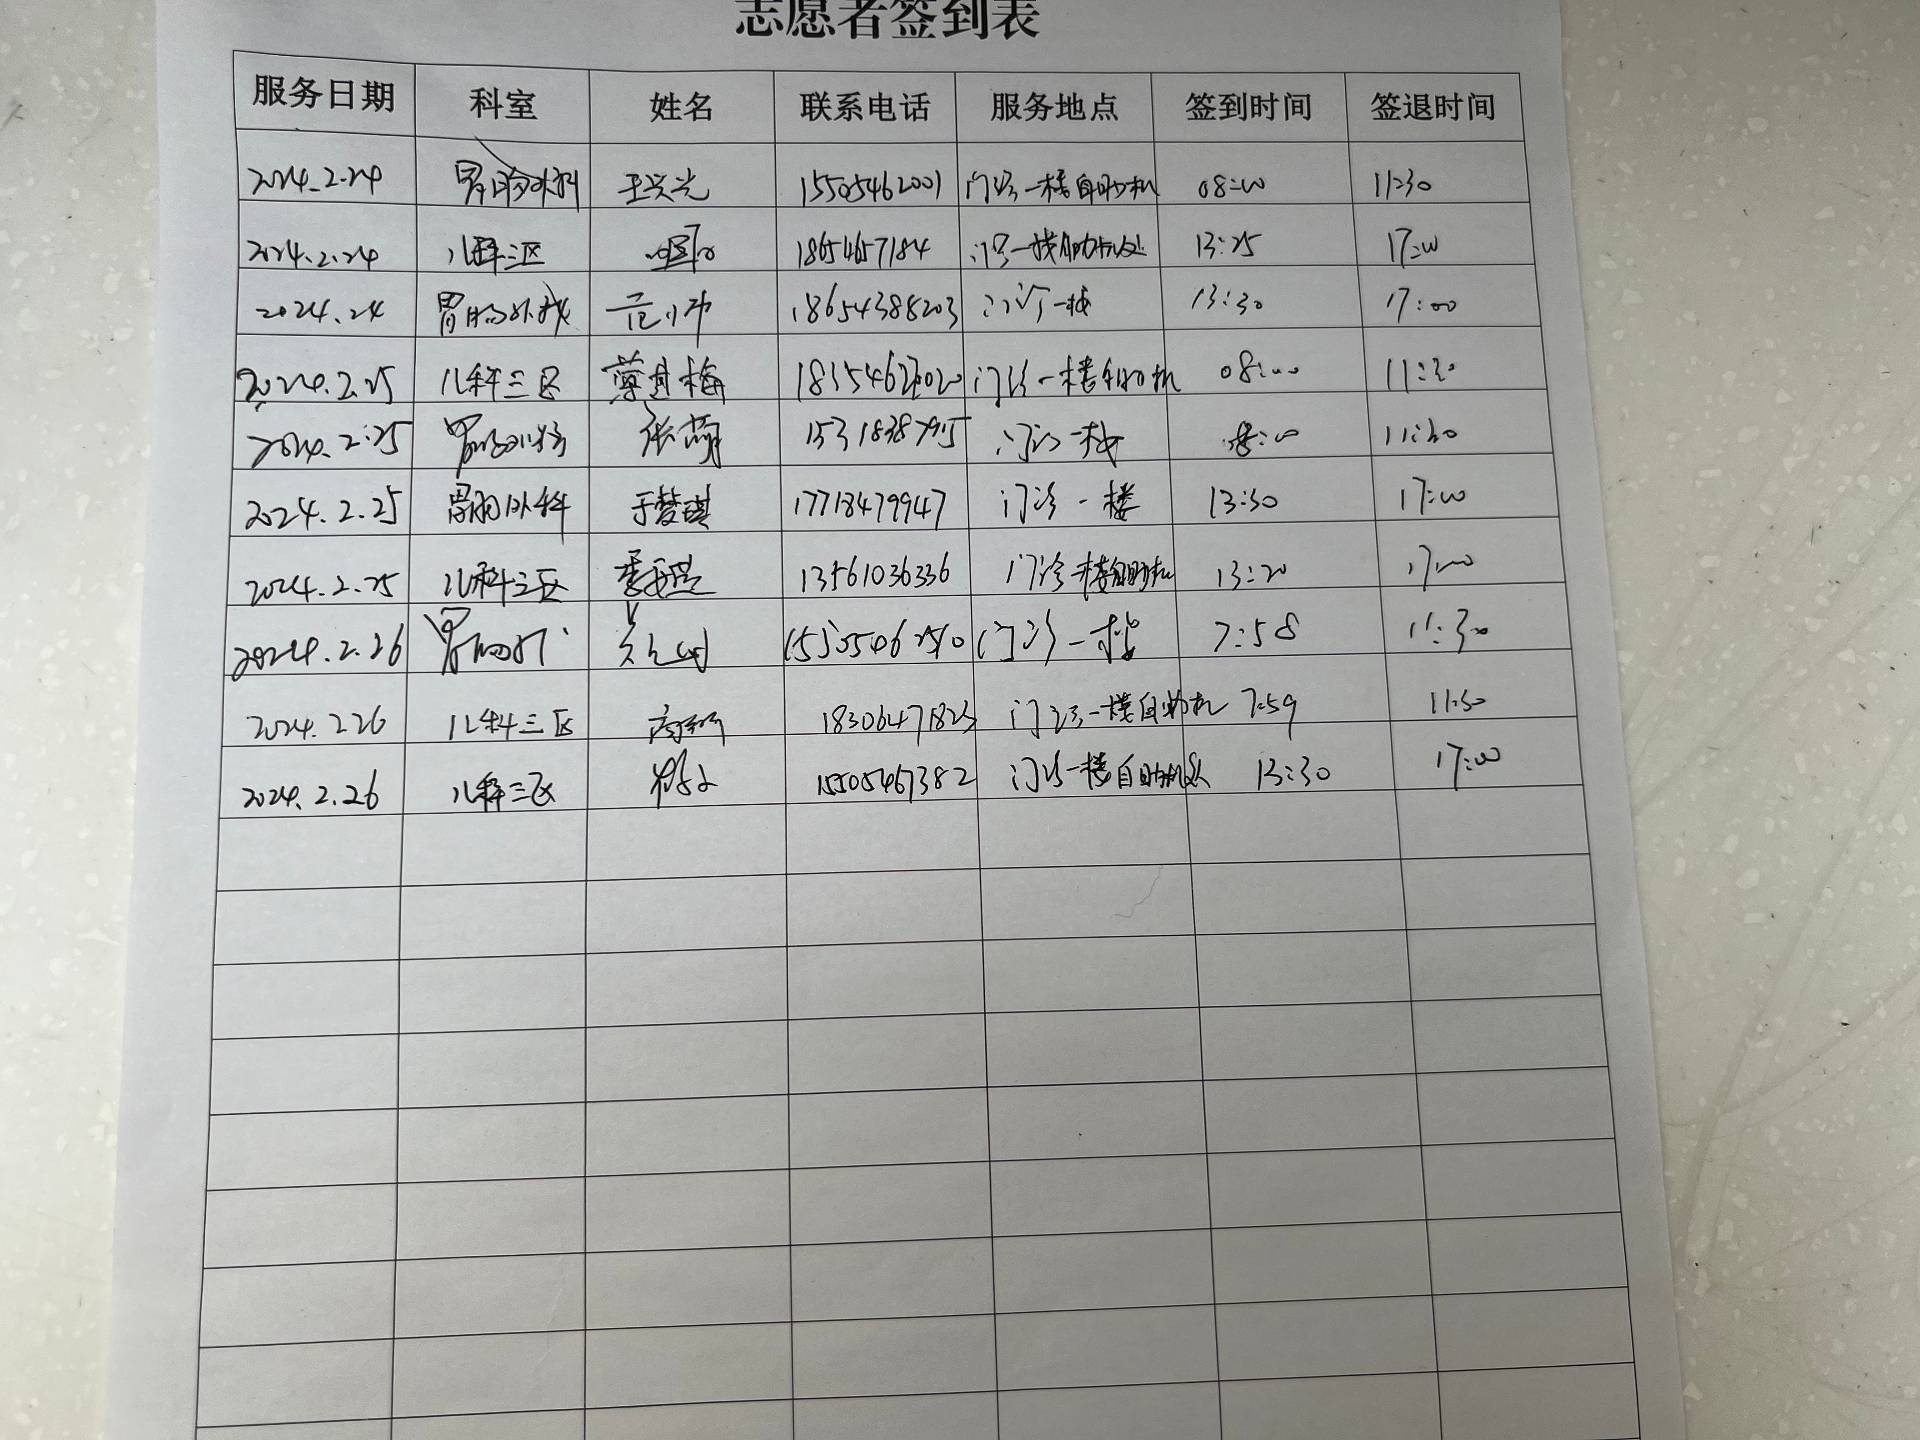 志愿者签到表
服务日期 科室 姓名 联系电话 服务地点 签到时间 签退时间
2024.2.24 胃肠外科 王兴光 15505462001 门诊一楼自助机 08:00 11:30
2024.2.24 儿科三区 1865457184 门诊一楼自助机处 13:25 17:00
2024.24 胃肠外科 范小冲 18654388203 门诊一楼 13:30 17:00
2024.2.25 儿科三区 薄其梅 门诊一楼自助机 08:00 11:30
2024.2.25 胃肠外科 张萌 门诊一楼 8:00 11:30
2024.2.25 胃肠外科 于梦琪 17718479947 门诊一楼 13:30 17:00
2024.2.25 儿科三区 13561036336 门诊一楼自助机 13:20 17:00
2024.2.26 门诊一楼 7:58 11:30
2024.226 儿科三区 18306471823 门诊一楼自助机 7:59 11:30
2024.2.26 儿科三区 15505467382 门诊一楼自助机处 13:30 17:00